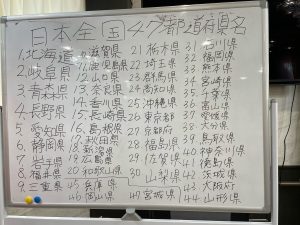 日本全国47都道府県名
1.北海道
2.岐阜県
3.青森県
4.長野県
5.愛知県
6.静岡県
7.岩手県
8.福井県
9.三重県
10.滋賀県
11.鹿児島県
12.山口県
13.奈良県
14.香川県
15.長崎県
16.島根県
17.秋田県
18.新潟県
19.広島県
20.和歌山県
45.兵庫県
46.岡山県
21.栃木県
22.埼玉県
23.群馬県
24.高知県
25.沖縄県
26.東京都
27.京都府
28.福島県
29.佐賀県
30.山梨県
47.宮城県
31.石川県
32.福岡県
33.熊本県
34.宮崎県
35.千葉県
36.富山県
37.愛媛県
38.大分県
39.鳥取県
40.神奈川県
41.徳島県
42.茨城県
43.大阪府
44.山形県